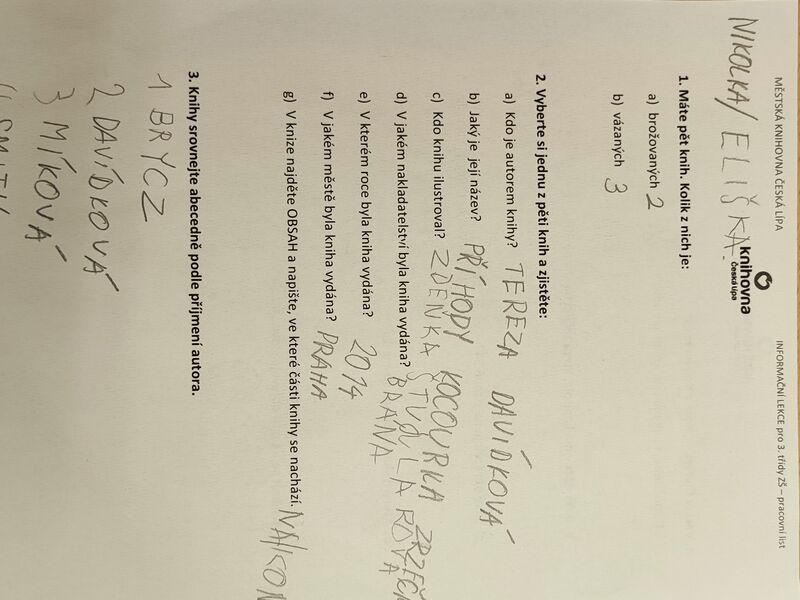 MĚSTSKÁ KNIHOVNA ČESKÁ LÍPA
INFORMAČNÍ LEKCE pro 3. třídy ZŠ – pracovní list
knihovna
Česká Lípa
NIKOLKA/ELIŠKA.
1. Máte pět knih. Kolik z nich je:
a) brožovaných 2
b) vázaných 3
2. Vyberte si jednu z pěti knih a zjistěte:
a) Kdo je autorem knihy? TEREZA DAVÍDKOVÁ
b) Jaký je její název? PŘÍHODY KOCOURKA
c) Kdo knihu ilustroval? ZDENKA
d) V jakém nakladatelství byla kniha vydána? BRÁNA
e) V kterém roce byla kniha vydána? 2014
f) V jakém městě byla kniha vydána? PRAHA
g) V knize najděte OBSAH a napište, ve které části knihy se nachází.
3. Knihy srovnejte abecedně podle příjmení autora.
1 BRYCZ
2 DAVÍDKOVÁ
3 MÍKOVÁ